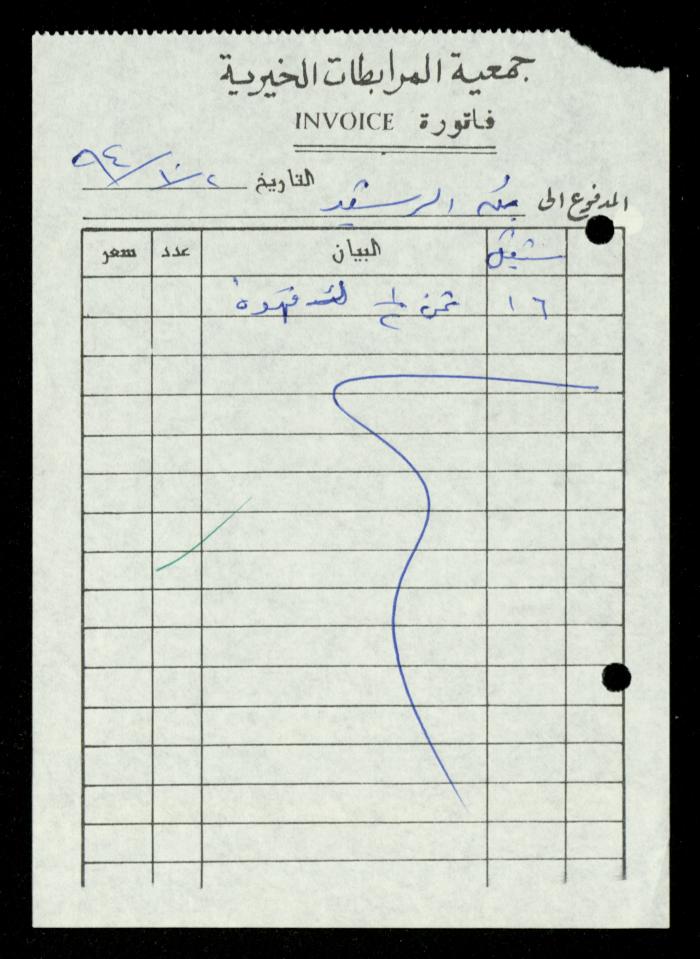 جمعية المرابطات الخيرية
فاتورة INVOICE
التاريخ ٢/١٠/٩٤
المدفوع الى
شيقل البيان عدد سعر
١٦ ثمن قهوة